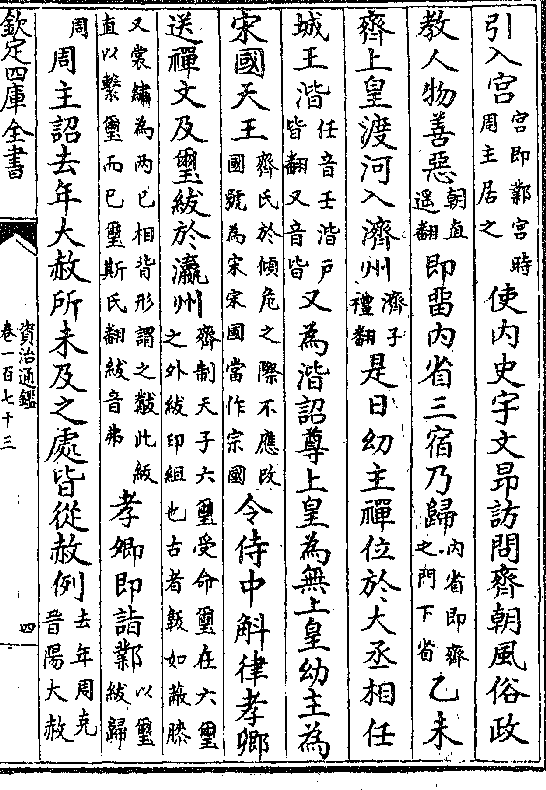 引入宮宮即鄴宮時周主居之使内史宇文昂訪問齊朝風俗政
教人物善惡朝直遥翻即留内省三宿乃歸内省即齊之門下省乙未
齊上皇渡河入濟州濟子禮翻是日幼主禪位於大丞相任
城王湝任音壬湝戸皆翻又音皆又為湝詔尊上皇為無上皇幼主為
宋國天王齊氏於傾危之際不應改國號為宋宋國當作宗國令侍中斛律孝卿
送禪文及璽紱於瀛州齊制天子六璽受命璽在六璽之外紱印組也古者韍如蔽膝
又裳繡為兩已相背形謂之黻此紱直以繫璽而已璽斯氏翻紱音弗孝卿即詣鄴以璽紱歸
周周主詔去年大赦所未及之處皆從赦例去年周克晉陽大赦
欽定四庫全書
資治通鑑
卷一百七十三
四